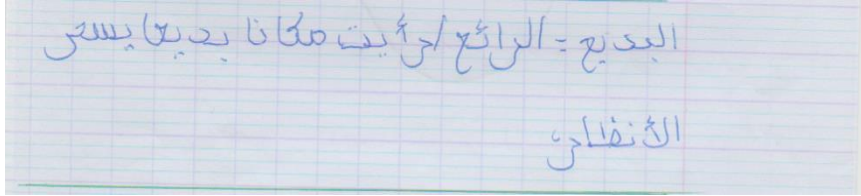 البديع = الرائع / رأيت مكانا بديعا يسحر
الأنظار